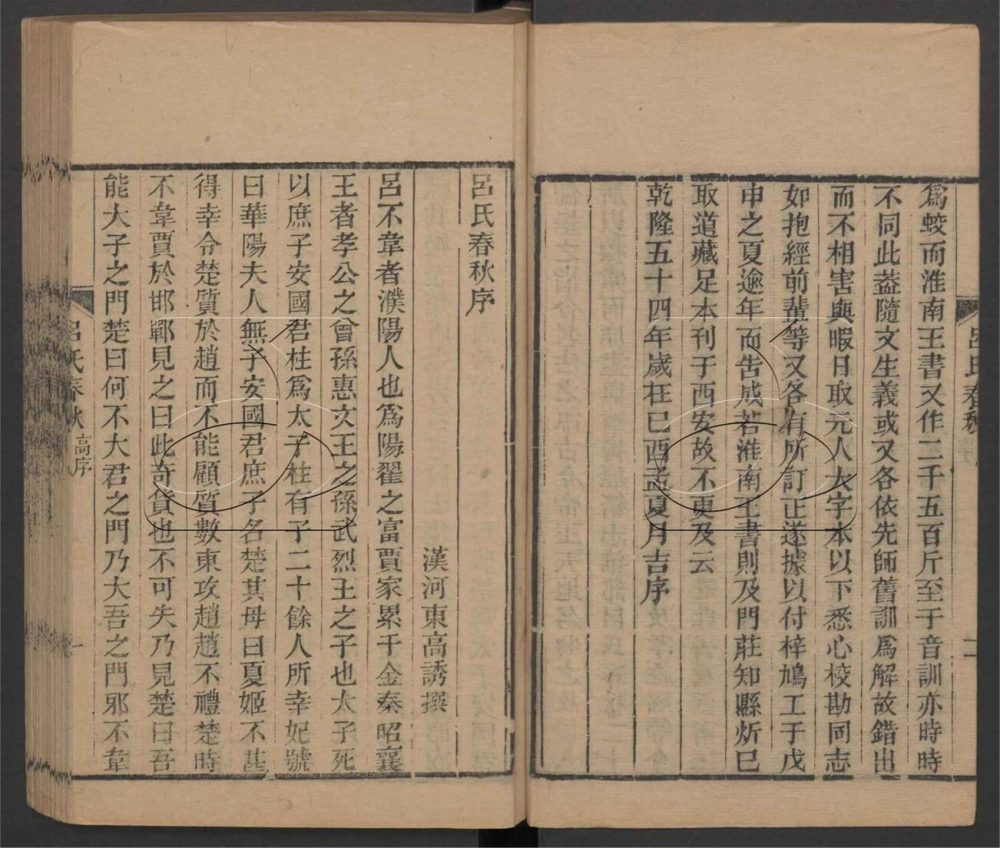 爲蛟而淮南王書又作二千五百斤至于音訓亦時時
不同此葢隨文生義或又各依先師舊訓爲解故錯出
而不相害與暇日取元人大字本以下悉心校勘同志
如抱經前輩等又各有所訂正遂據以付梓鳩工于戊
申之夏逾年而告成若淮南王書則及門莊知縣炘已
取道藏足本刊于西安故不更及云
乾隆五十四年歲在已酉孟夏月吉序
呂氏春秋
序
二
呂氏春秋序
漢河東高誘撰
呂不韋者濮陽人也爲陽翟之富賈家累千金秦昭襄
王者孝公之曾孫惠文王之孫武烈王之子也太子死
以庶子安國君柱爲太子柱有子二十餘人所幸妃號
曰華陽夫人無子安國君庶子名楚其母曰夏姬不甚
得幸令楚質於趙而不能顧質數東攻趙趙不禮楚時
不韋賈於邯鄲見之曰此奇貨也不可失乃見楚曰吾
能大子之門楚曰何不大君之門乃大吾之門邪不韋
呂氏春秋
高序
一